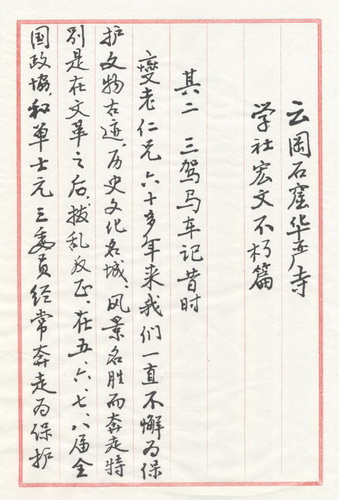 云岡石窟华严寺
学社宏文不朽篇
其二 三驾马车记昔时
夔老仁兄六十多年来我们一直不懈为保
护文物古迹、历史文化名城、风景名胜而奔走特
别是在文革之后,拨乱反正、在五、六、七、八届全
国政協,和单士元三委员经常奔走为保护